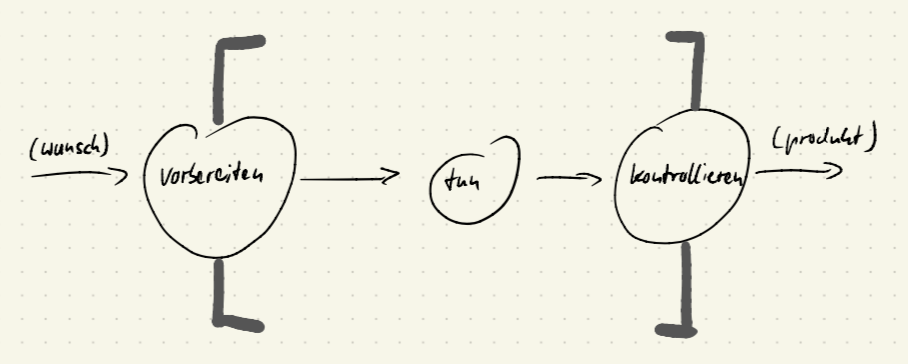 (wunsch)
vorbereiten
tun
kontrollieren
(produkt)